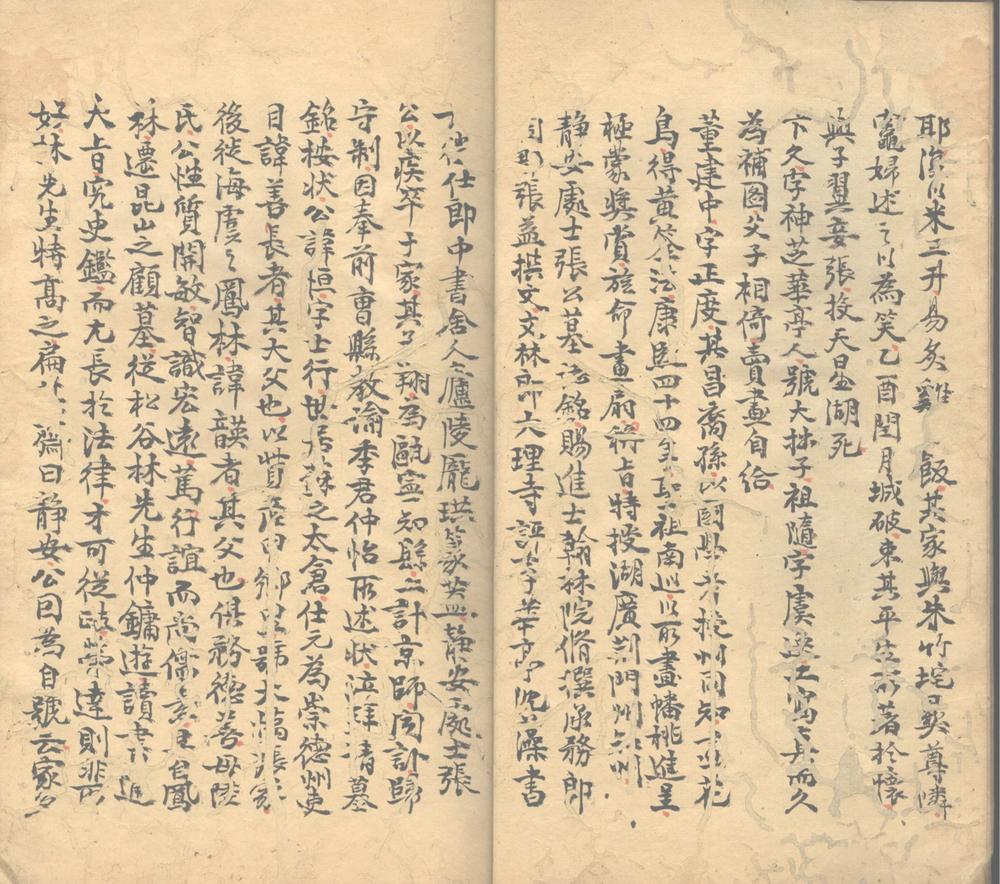 耶潔以米三升易炙雞飯其家與朱竹垞口契尊隣
竈婦述之以為笑乙酉閏月城破束其平生所著於懷
與子翼妾張投天目湖死
卞久字神芝華亭人號大拙子祖隨字虞逸工寫真而久
為補圖父子相倚賣畫自給
董建中字正度其昌裔孫以國學考授州同知工花
鳥得黃筌法康熙四十四年聖祖南巡以所畫幡桃進呈
極蒙奬賞旋命畫扇稱旨特授湖廣荊門州知州
静安處士張公墓誌銘賜進士翰林院脩撰承務郎
張益撰文文林郎大理寺評事華亭沈藻書
仕郎中書舍人廬陵龎珙篆葢静安處士張
公以疾卒于家其子翔為甌寧知縣上計京師聞訃歸
守制因奉前曹縣教諭李君仲怡所述状泣拜請墓
銘桉状公諱恒字士行世居蘇之太倉仕元為崇德州吏
目諱善長者其大父也以貲産甲鄉里號大
後徙海虞之鳳林諱韺者其父也俱務德善母陸
氏公性質開敏智識宏遠篤行誼而尚儒素且自鳳
林遷昆山之顧墓從松谷林先生仲鏞遊讀書
大旨究史鑑而尤長於法律才可從政榮達則非所
好林先生特髙之扁曰静安公因為自號云家多